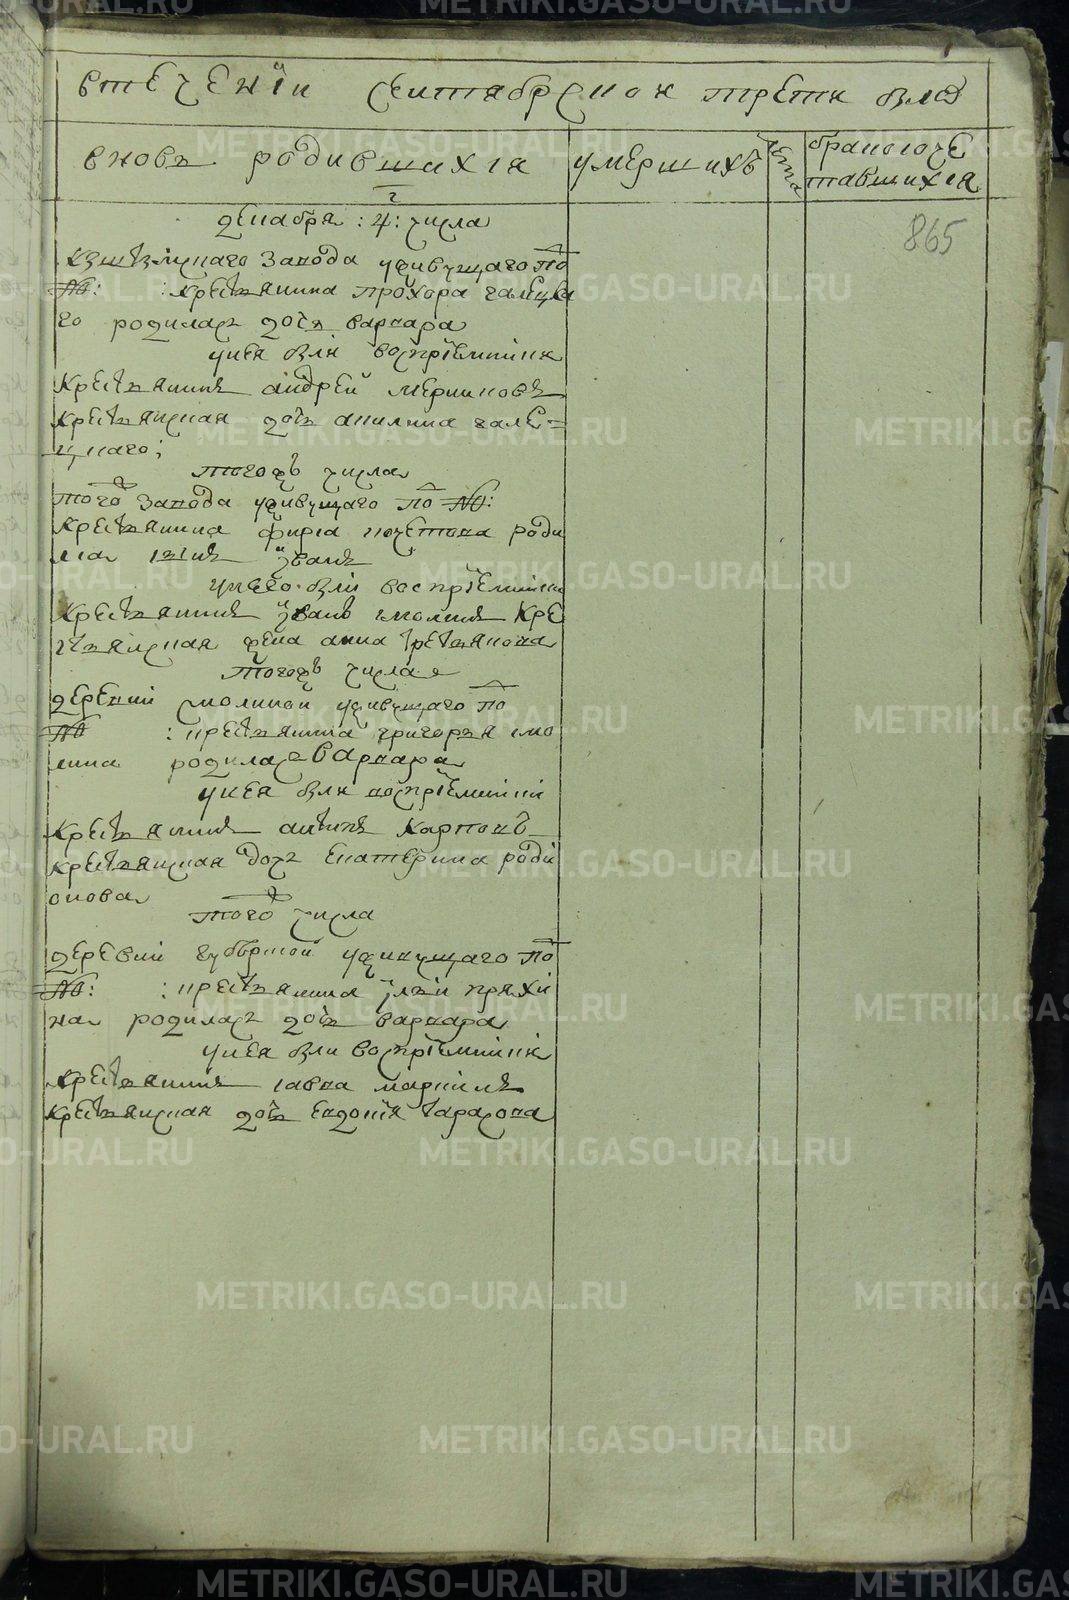 втечениi сентябрской трети были
вновь родившихся
умершихъ
лета
браносоче
тавшихся
865
декабря : 4 : числа
кыштымскаго завода уживущаго по
№: : крестьянина прохора галецка
го родилась дочь варвара
унея были восприемники
крестьянинъ андрей меркиловъ
крестьянская дочь акилина гале=
цкаго;
тогожъ числа
того завода уживущаго по №:
крестьянина фирса кочетова роди
лся сынъ iванъ
унего были восприемники
крестьянинъ iванъ смолинъ кре
стьянская жена анна третьякова
тогожъ числа
деревни смолиной уживущаго по
№ : крестьянина григорья смо
лина родилась варвара
унея были восприемники
крестьянинъ антипъ карповъ
крестьянская дочь екатерина роди
онова
того числа
деревни губернской уживущаго по
№: : крестьянина iльи пряхи
на родилась дочь варвара
унея были восприемники
крестьянинъ савва маркинъ
крестьянская дочь евдокия тарасова
METRIKI.GASO-URAL.RU